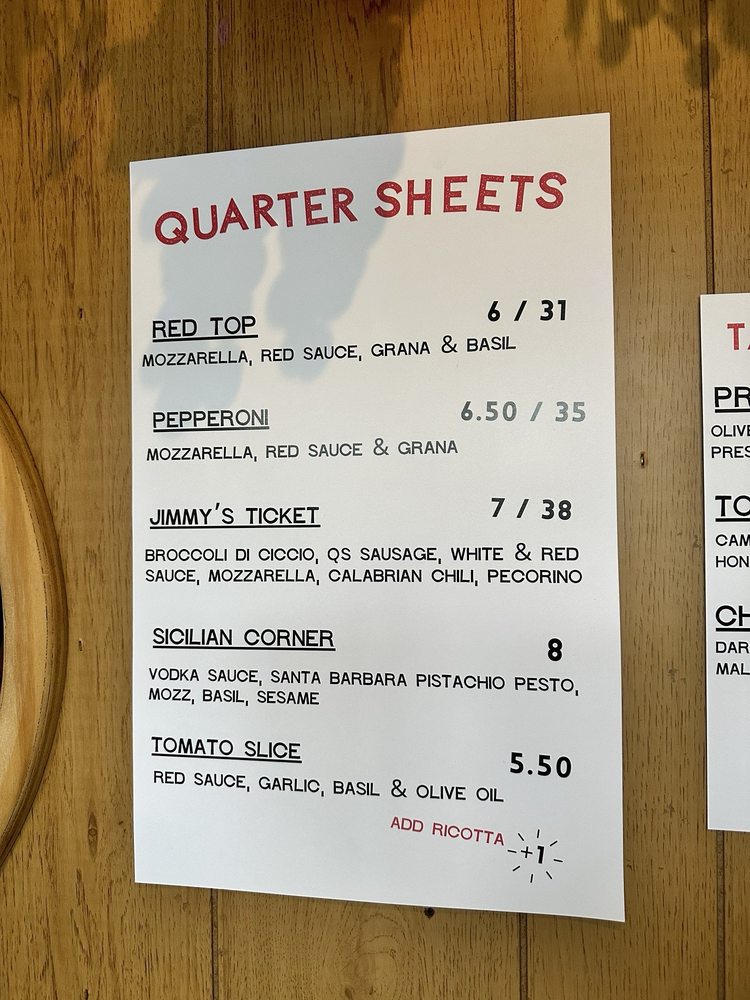 QUARTER SHEETS
RED TOP 6 / 31
MOZZARELLA, RED SAUCE, GRANA & BASIL
PEPPERONI 6.50 / 35
MOZZARELLA, RED SAUCE & GRANA
JIMMY'S TICKET 7 / 38
BROCCOLI DI CICCIO, QS SAUSAGE, WHITE & RED
SAUCE, MOZZARELLA, CALABRIAN CHILI, PECORINO
SICILIAN CORNER 8
VODKA SAUCE, SANTA BARBARA PISTACHIO PESTO,
MOZZ, BASIL, SESAME
TOMATO SLICE 5.50
RED SAUCE, GARLIC, BASIL & OLIVE OIL
ADD RICOTTA +1